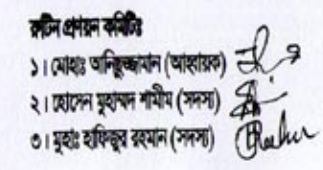 রুটিন প্রণয়ন কমিটিঃ
১। মোহাঃ আনিছুজ্জামান (আহ্বায়ক)
২। হোসেন মুহাম্মদ শামীম (সদস্য)
৩। মুহাঃ হাফিজুর রহমান (সদস্য)